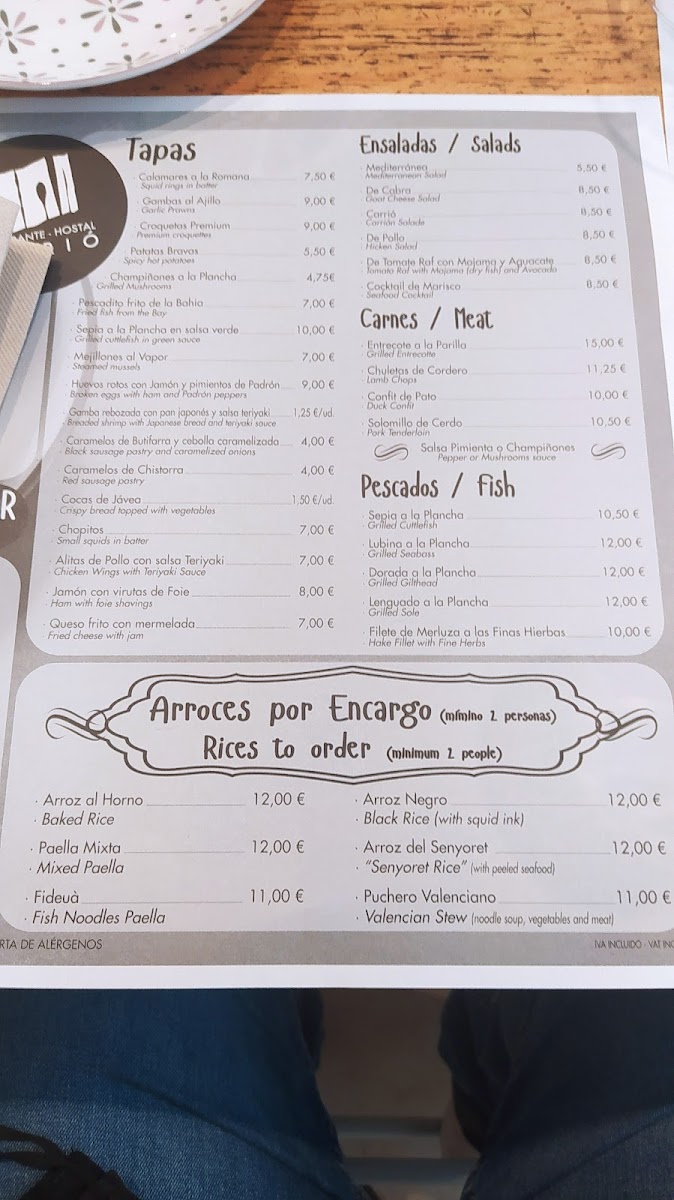 ANTE - HOSTAL
Tapas
· Calamares a la Romana 7,50 €
Squid rings in batter
· Gambas al Ajillo 9,00 €
Garlic Prawns
· Croquetas Premium 9,00 €
Premium croquettes
· Patatas Bravas 5,50 €
· Spicy hot potatoes
· Champiñones a la Plancha 4,75€
Grilled Mushrooms
· Pescadito frito de la Bahia 7,00 €
· Fried fish from the Bay
· Sepia a la Plancha en salsa verde 10,00 €
· Grilled cuttlefish in green sauce
· Mejillones al Vapor 7,00 €
· Steamed mussels
· Huevos rotos con Jamón y pimientos de Padrón 9,00 €
Broken eggs with ham and Padrón peppers
· Gamba rebozada con pan japonés y salsa teriyaki 1,25 €/ud.
· Breaded shrimp with Japanese bread and teriyaki sauce
· Caramelos de Butifarra y cebolla caramelizada 4,00 €
· Black sausage pastry and caramelized onions
· Caramelos de Chistorra 4,00 €
· Red sausage pastry
· Cocas de Jávea 1,50 €/ud.
· Crispy bread topped with vegetables
· Chopitos 7,00 €
· Small squids in batter
· Alitas de Pollo con salsa Teriyaki 7,00 €
· Chicken Wings with Teriyaki Sauce
· Jamón con virutas de Foie 8,00 €
· Ham with foie shavings
· Queso frito con mermelada 7,00 €
Fried cheese with jam
Ensaladas / Salads
· Mediterránea 5,50 €
Mediterranean Salad
· De Cabra 8,50 €
Goat Cheese Salad
· Carrió 8,50 €
Carrión Salade
· De Pollo 8,50 €
Hicken Salad
· De Tomate Raf con Mojama y Aguacate 8,50 €
Tomato Raf with Mojama (dry fish) and Avocado
· Cocktail de Marisco 8,50 €
Seafood Cocktail
Carnes / Meat
· Entrecote a la Parilla 15,00 €
· Grilled Entrecotte
· Chuletas de Cordero 11,25 €
· Lamb Chops
· Confit de Pato 10,00 €
· Duck Confit
· Solomillo de Cerdo 10,50 €
· Pork Tenderloin
Salsa Pimienta o Champiñones
Pepper or Mushrooms sauce
Pescados / Fish
· Sepia a la Plancha 10,50 €
· Grilled Cuttlefish
· Lubina a la Plancha 12,00 €
· Grilled Seabass
· Dorada a la Plancha 12,00 €
· Grilled Gilthead
· Lenguado a la Plancha 12,00 €
· Grilled Sole
· Filete de Merluza a las Finas Hierbas 10,00 €
· Hake Fillet with Fine Herbs
R
Arroces por Encargo (mímino 2 personas)
Rices to order (minimum 2 people)
· Arroz al Horno 12,00 €
· Baked Rice
· Paella Mixta 12,00 €
· Mixed Paella
· Fideuà 11,00 €
· Fish Noodles Paella
· Arroz Negro 12,00 €
· Black Rice (with squid ink)
· Arroz del Senyoret 12,00 €
· "Senyoret Rice" (with peeled seafood)
· Puchero Valenciano 11,00 €
· Valencian Stew (noodle soup, vegetables and meat)
RTA DE ALÉRGENOS
IVA INCLUIDO · VAT INC